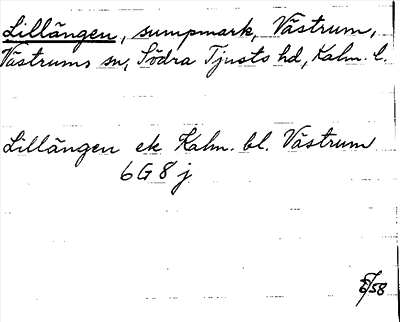 Lillängen, sumpmark, Västrum,
Västrums sn, Södra Tjusts hd, Kalm. l.
Lillängen ek Kalm. bl. Västrum
6G8j
/58